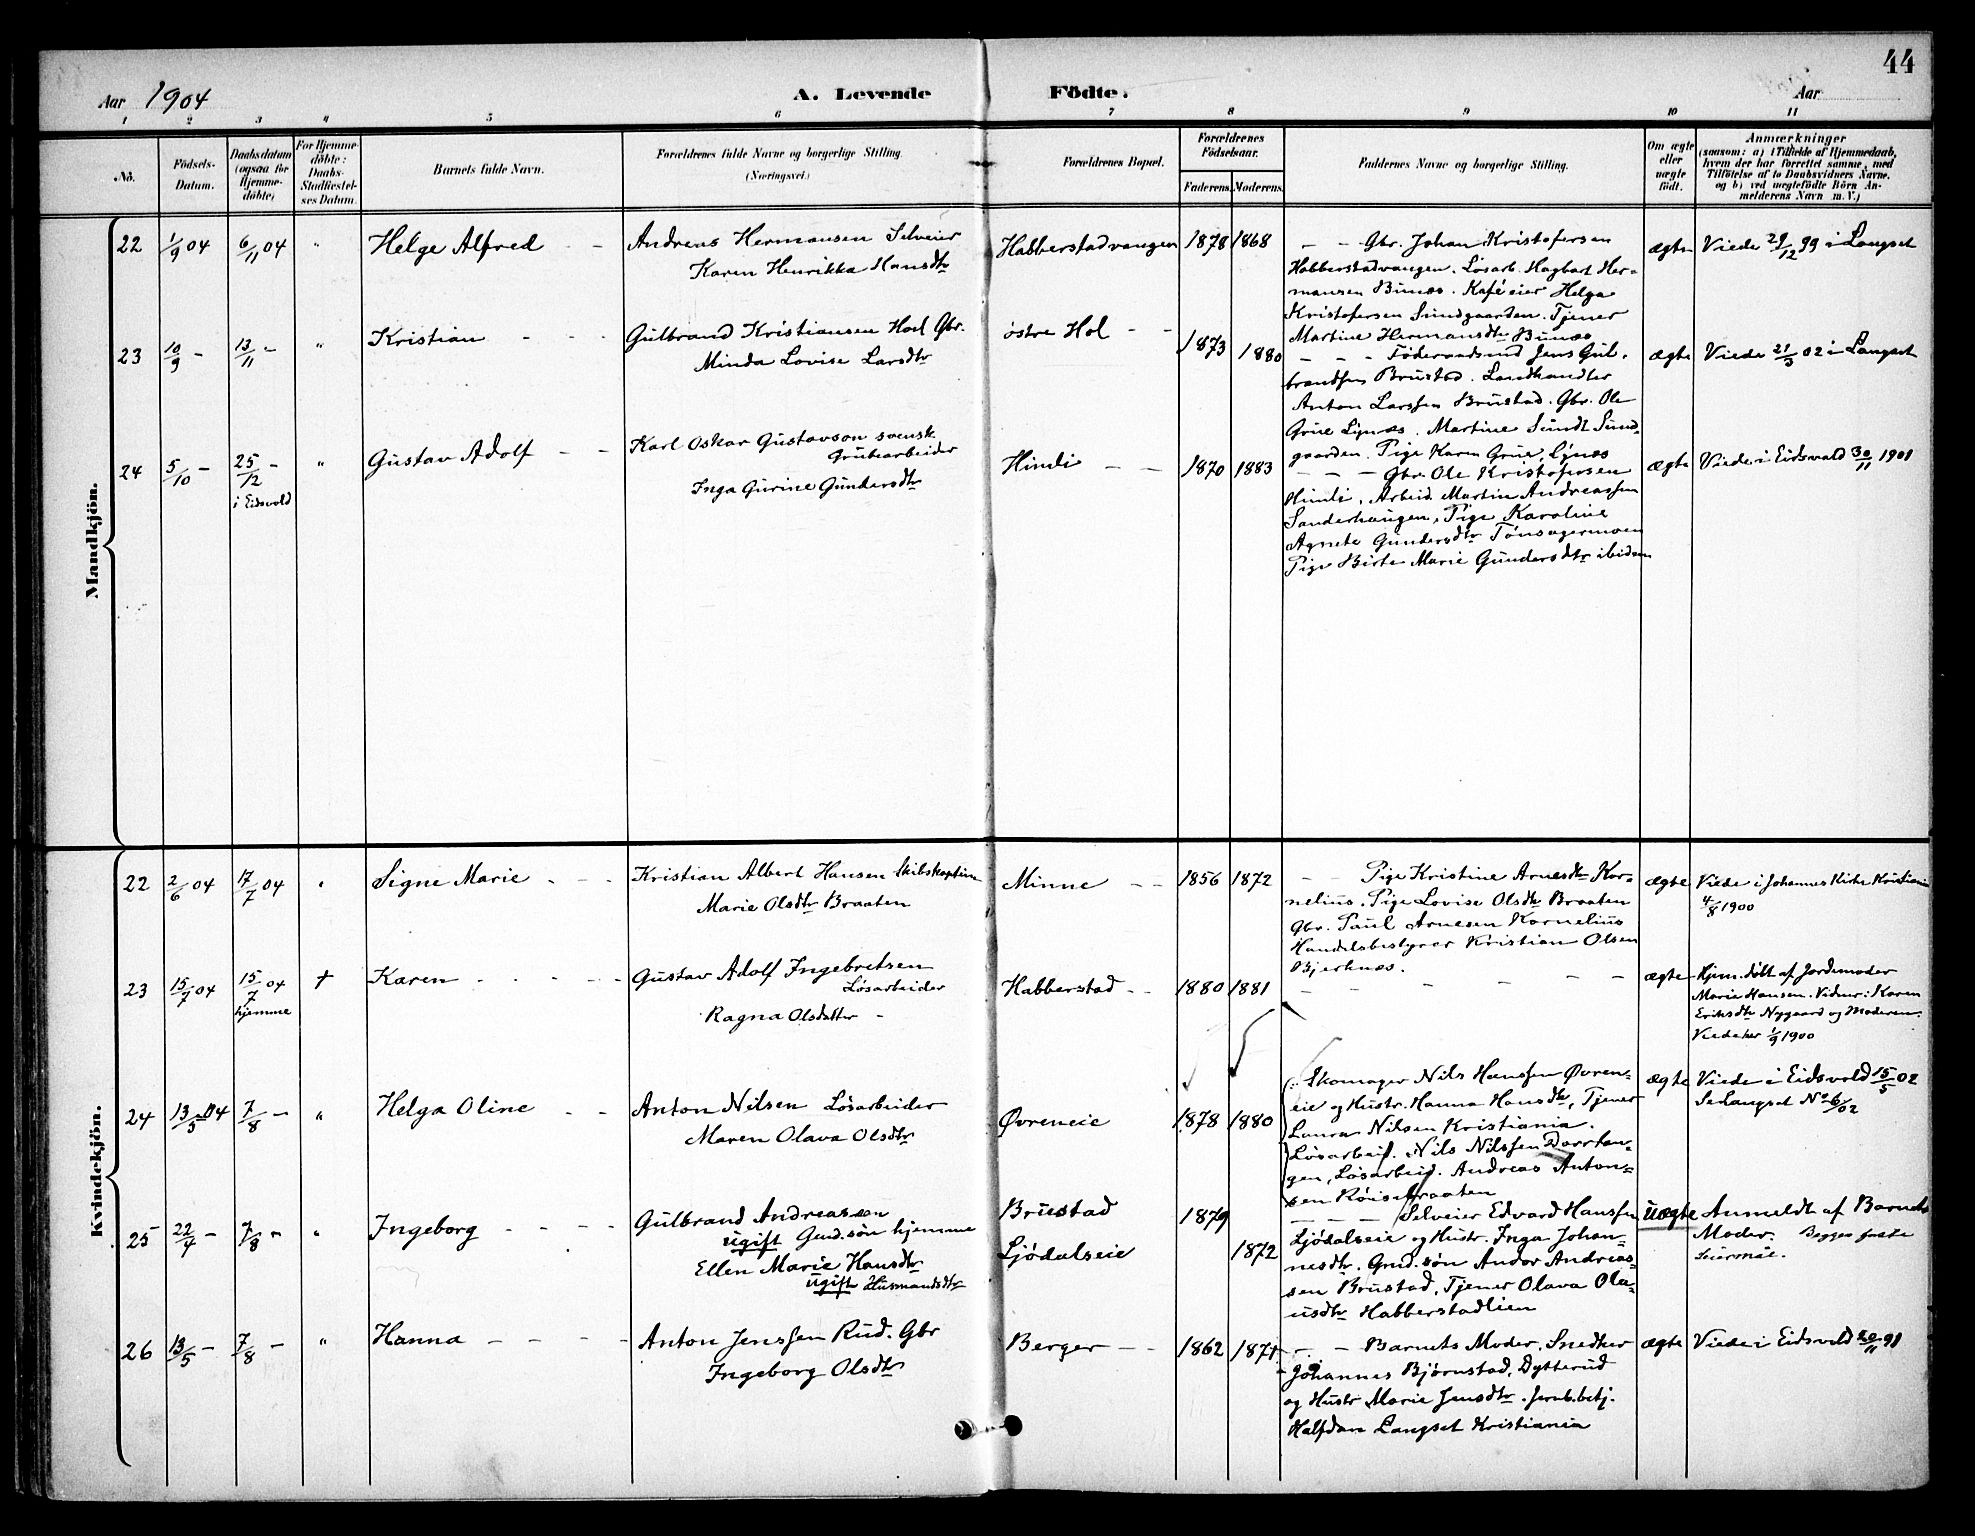 44
Aar 1904 A. Levende Födte. Aar
1 2 3 4 5 6 7 8 9 10 11
No. Födsels-Datum. Daabsdatum (ogsaa for Hjemme-döbte) For Hjemme-döbte: Daabs-Stadfæstel-ses Datum. Barnets fulde Navn. Forældrenes fulde Navne og borgerlige Stilling. (Næringsvei.) Forældrenes Bopæl. Forældrenes Födselsaar. Faderens. Moderens. Faddernes Navne og borgerlige Stilling. Om ægte eller uægte födt. Anmærkninger
(saasom: a) i Tilfælde af Hjemmedaab, hvem der har forrettet samme, med Tilföielse af to Daabsvidners Navne. og b) ved uægtefödte Börn An-melderens Navn m. V.)
Mandkjön.
22 1/9 04 6/11 04 " Helge Alfred - - Andreas Hermansen Selveier
Karen Henrikka Hansdtr
Habberstadvangen 1878 1868 - - Gbr. Johan Kristofersen
Habberstadvangen. Løsarb. Hagbart Her-
mansen Bunæs. Kaféeier Helga
Kristofersen Sundgaarden. Tjener
Martine Hermansdtr Bunæs
ægte Viede 29/12 99 i Langset
23 10/9 - 13/11 - " Kristian - - - Gulbrand Kristiansen Hol Gbr.
Minda Lovise Larsdtr
østre Hol - - 1873 1880 - - - Føderaadsmd Jens Gul-
brandsen Brustad. Landhandler
Anton Larssen Brustad. Gbr. Ole
Grue Lynæs. Martine Sundt Sund-
gaarden. Pige Karen Grue, Lynæs
ægte Viede 21/3 02 i Langset
24 5/10 - 25/12 - i Eidsvold " Gustav Adolf - - Karl Oskar Gustavson svensk
Grubearbeider
Inga Gurine Gundersdtr
Himli - - 1870 1883 - - - Gbr. Ole Kristofersen
Himli. Arbeid. Martin Andreassen
Sanderhaugen, Pige Karoline
Agnete Gundersdtr Tønsagermoen
Pige Birte Marie Gundersdtr ibidem
ægte Viede i Eidsvold 30/11 1901
Kvindekjön.
22 2/6 04 17/7 04 " Signe Marie - - - Kristian Albert Hansen Skibskaptein
Marie Olsdtr Braaten
Minne - - 1856 1872 - - Pige Kristine Arnesdtr Kor-
nelius. Pige Lovise Olsdtr Braaten
Gbr. Paul Arnesen Kornelius
Handelsbestyrer Kristian Olsen
Bjerknæs.
ægte Viede i Johannes Kirke Kristiania
4/8 1900
23 15/7 04 15/7 04 hjemme † Karen - - - - Gustav Adolf Ingebretsen
Løsarbeider
Ragna Olsdatter -
Habberstad - - 1880 1881 - - - - - -
ægte Hjem. døbt af Jordemoder
Marie Hansen. Vidner: Karen
Eriksdtr Nygaard og Moderen.
Viede her 1/9 1900
24 13/5 04 7/8 - " Helga Oline - - Anton Nilsen Løsarbeider
Maren Olava Olsdtr
Øvreneie 1878 1880 Skomager Nils Hanssen Øvren-
eie og Hustr. Hanna Hansdtr, Tjener
Laura Nilsen Kristiania.
Løsarbeid. Nils Nilssen Dorrtan-
gen, Løsarbeid. Andreas Anton-
sen Røisebraaten
ægte Viede i Eidsvold 15/5 02
Se Langset No 6/02
25 22/4 - 7/8 - " Ingeborg - - - - Gulbrand Andreassen
ugift Gmd.søn hjemme
Ellen Marie Hansdtr
ugift Husmandsdtr
Brustad
Ljødalseie
1879 1872 - - - - Selveier Edvard Hanssen
Ljødalseie og Hustr. Inga Johan-
nesdtr. Gmd.søn Andor Andreas-
sen Brustad, Tjener Olava Ola-
usdtr Habberstadlien
uægte Anmeldt af Barnets
Moder. Begges første
Leiermål.
26 13/5 - 7/8 - " Hanna - - - - Anton Jenssen Rud. Gbr
Ingeborg Olsdtr
Berger - - 1862 1871 - - Barnets Moder, Snedker
Johannes Bjørnstad, Dytterud
og Hustr Marie Jensdtr. Jernb.betj.
Halfdan Langset Kristiania
ægte Viede i Eidsvold 20/11 91